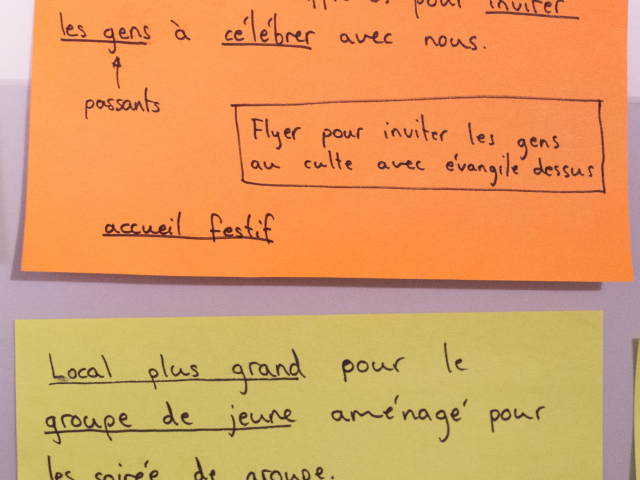 pour inviter
les gens à célébrer avec nous.
passants
Flyer pour inviter les gens
au culte avec évangile dessus
accueil festif
Local plus grand pour le
groupe de jeune aménagé pour
les soirée de groupe.